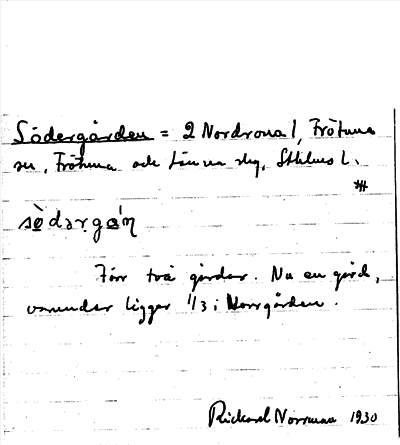 Södergården = 2 Nordrona 1, Frötuna
sn, Frötuna och Länna skg, Sthlms l.
södərgɑ́ṇ
Förr två gårdar. Nu en gård,
varunder ligger 1/3 i Norrgården.
Rickard Norrman 1930